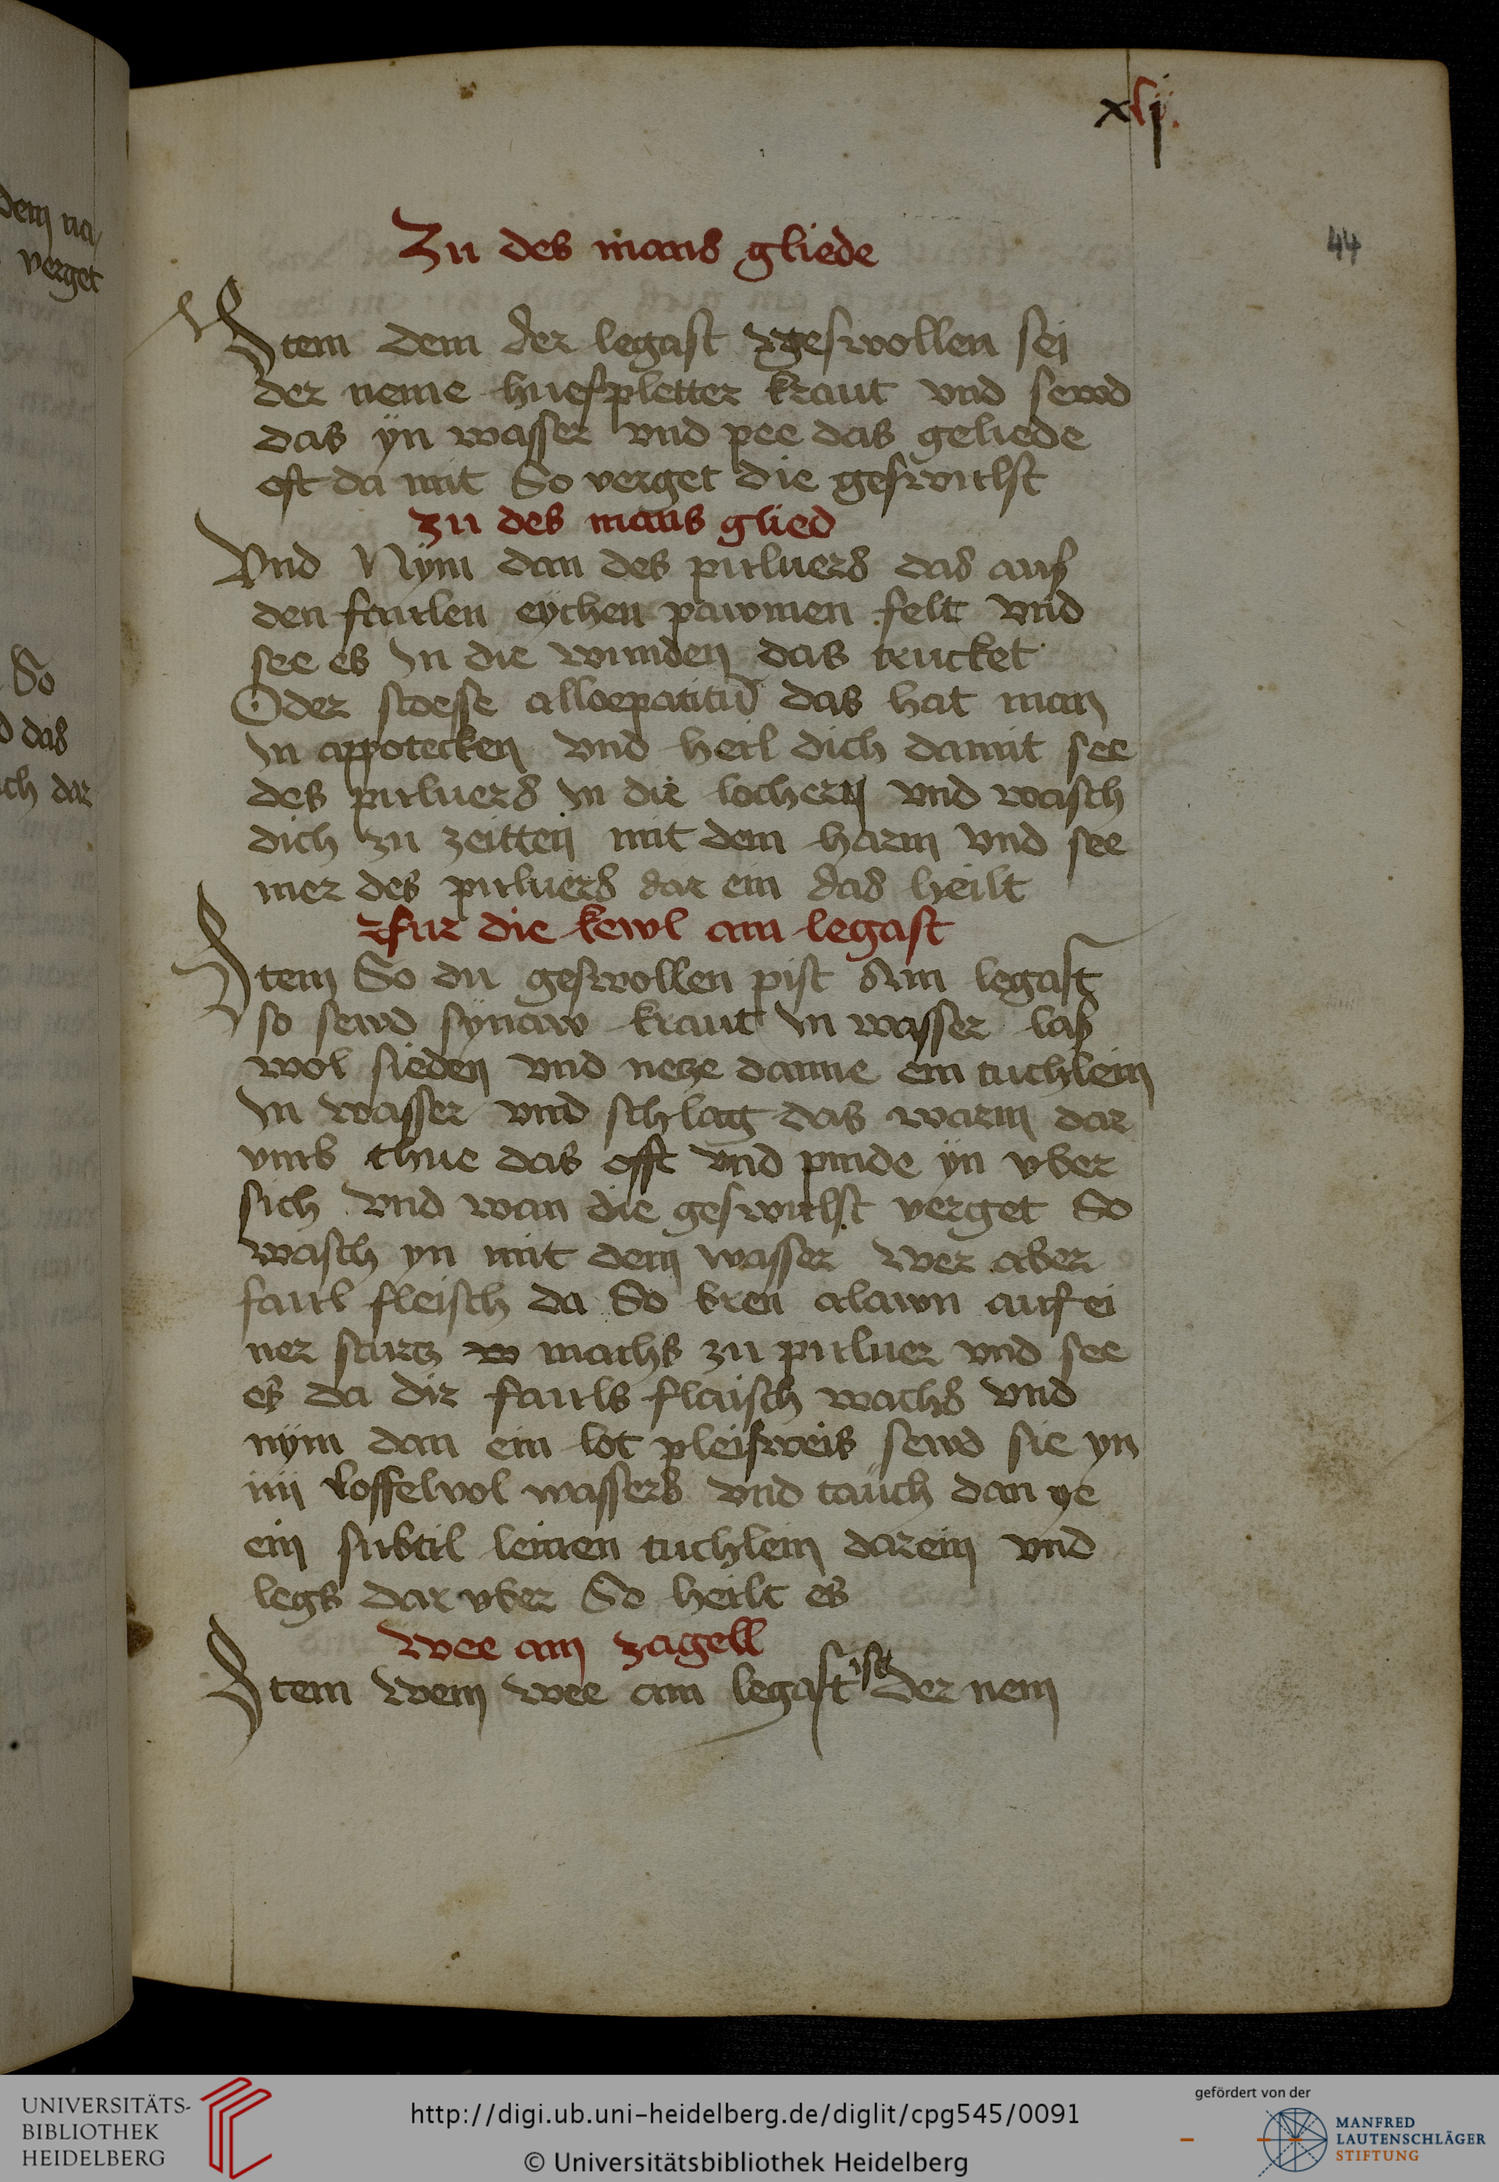 xlj.
44
Zu des mans gliede
Item dem der legast geswollen sei
der neme huefpletter kraut vnd sewd
das yn wasser vnd pee das geliede
oft da mit So verget die geswulst
zu des mans glied
Vnd Nym dan des puluers das auß
den faulen eychen pawmen felt vnd
see es In die wunden das trucket
Oder stosse alloepaticu das hat man
In appotecken vnd heil dich damit see
des puluers In die locher vnd wasch
dich zu zeitten mit dem harm vnd see
mer des puluers dar ein das heilt
fur die kewl am legast
Item So du geswollen pist am legast
so sewd synaw kraut In wasser laß
wol sieden vnd netze danne ein tuchlein
In wasser vnd schlag das warm dar
vmb thue das offt vnd pinde yn vber
sich vnd wan die geswulst verget So
wasch yn mit dem wasser Wer aber
faul fleisch da So bren alawn auf ei
ner sturtz machs zu puluer vnd see
es da dir fauls flaisch wachs vnd
nym dan ein lot pleisweis sewd sie yn
iiij loffelvol wassers vnd tauch dan ye
ein subtil leinen tuchlein darein vnd
legs dar vber So heilt es
Wee am zagell
Item Wem wee am legast ist der nem
dem na
verget
So
das
ch dar
UNIVERSITÄTS-
BIBLIOTHEK
HEIDELBERG
http://digi.ub.uni-heidelberg.de/diglit/cpg545/0091
© Universitätsbibliothek Heidelberg
gefördert von der
MANFRED
LAUTENSCHLÄGER
STIFTUNG